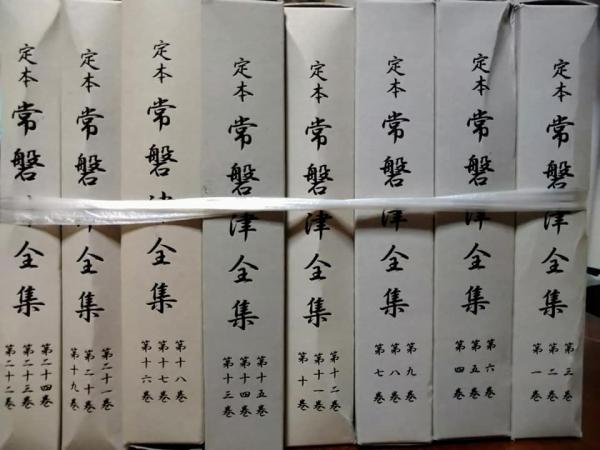 定本 常磐津全集
第三巻
第二巻
第一巻
定本 常磐津全集
第六巻
第五巻
第四巻
定本 常磐津全集
第九巻
第八巻
第七巻
定本 常磐津全集
第十二巻
第十一巻
第十巻
定本 常磐津全集
第十五巻
第十四巻
第十三巻
定本 常磐津全集
第十八巻
第十七巻
第十六巻
定本 常磐津全集
第二十一巻
第二十巻
第十九巻
定本 常磐津全集
第二十四巻
第二十三巻
第二十二巻